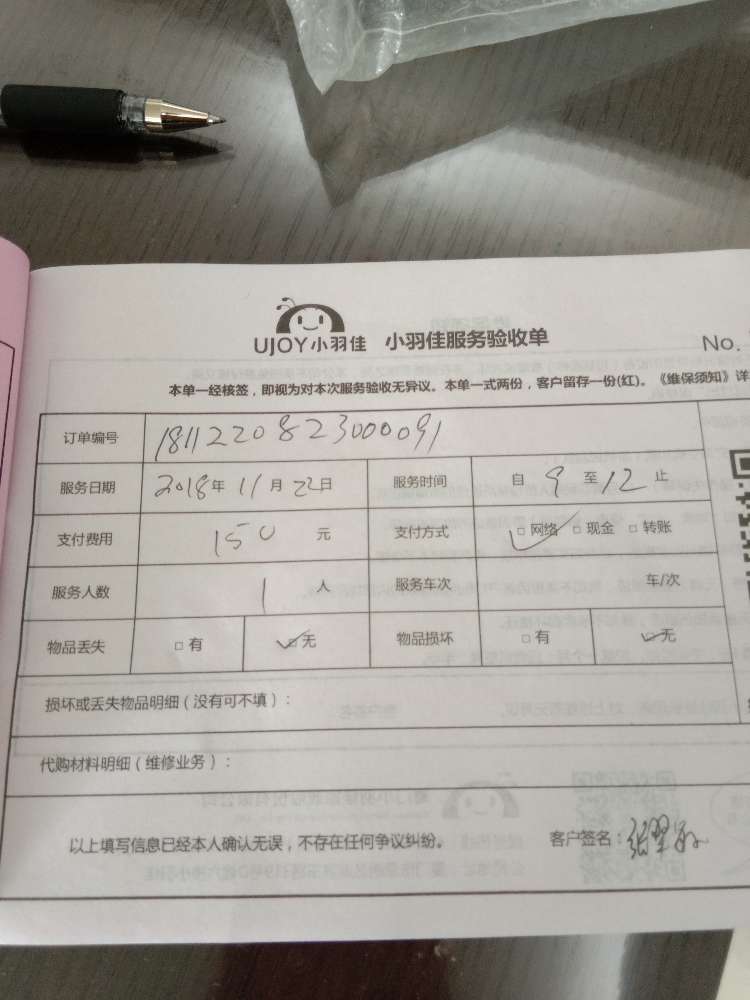 UJOY小羽佳 小羽佳服务验收单
No.
本单一经核签，即视为对本次服务验收无异议。本单一式两份，客户留存一份(红)。《维保须知》详
订单编号 1811220823000091
服务日期 2018年11月22日 服务时间 自9至12止
支付费用 150元 支付方式 □网络 □现金 □转账
服务人数 1人 服务车次 车/次
物品丢失 □有 □无 物品损坏 □有 □无
损坏或丢失物品明细（没有可不填）：
代购材料明细（维修业务）：
以上填写信息已经本人确认无误，不存在任何争议纠纷。 客户签名：